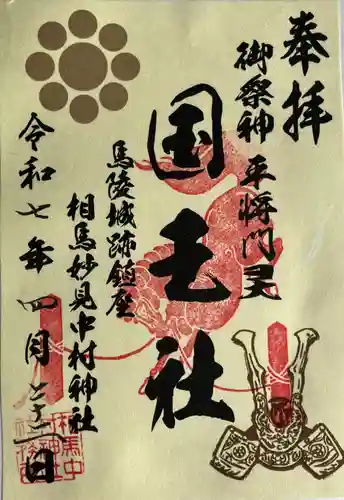 奉拝
御祭神 平将門
国王社
馬陵城跡鎮座
相馬妙見中村神社
令和七年四月二十二日